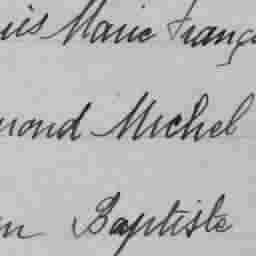 uis Marie Franç
mond Michel
n Baptiste